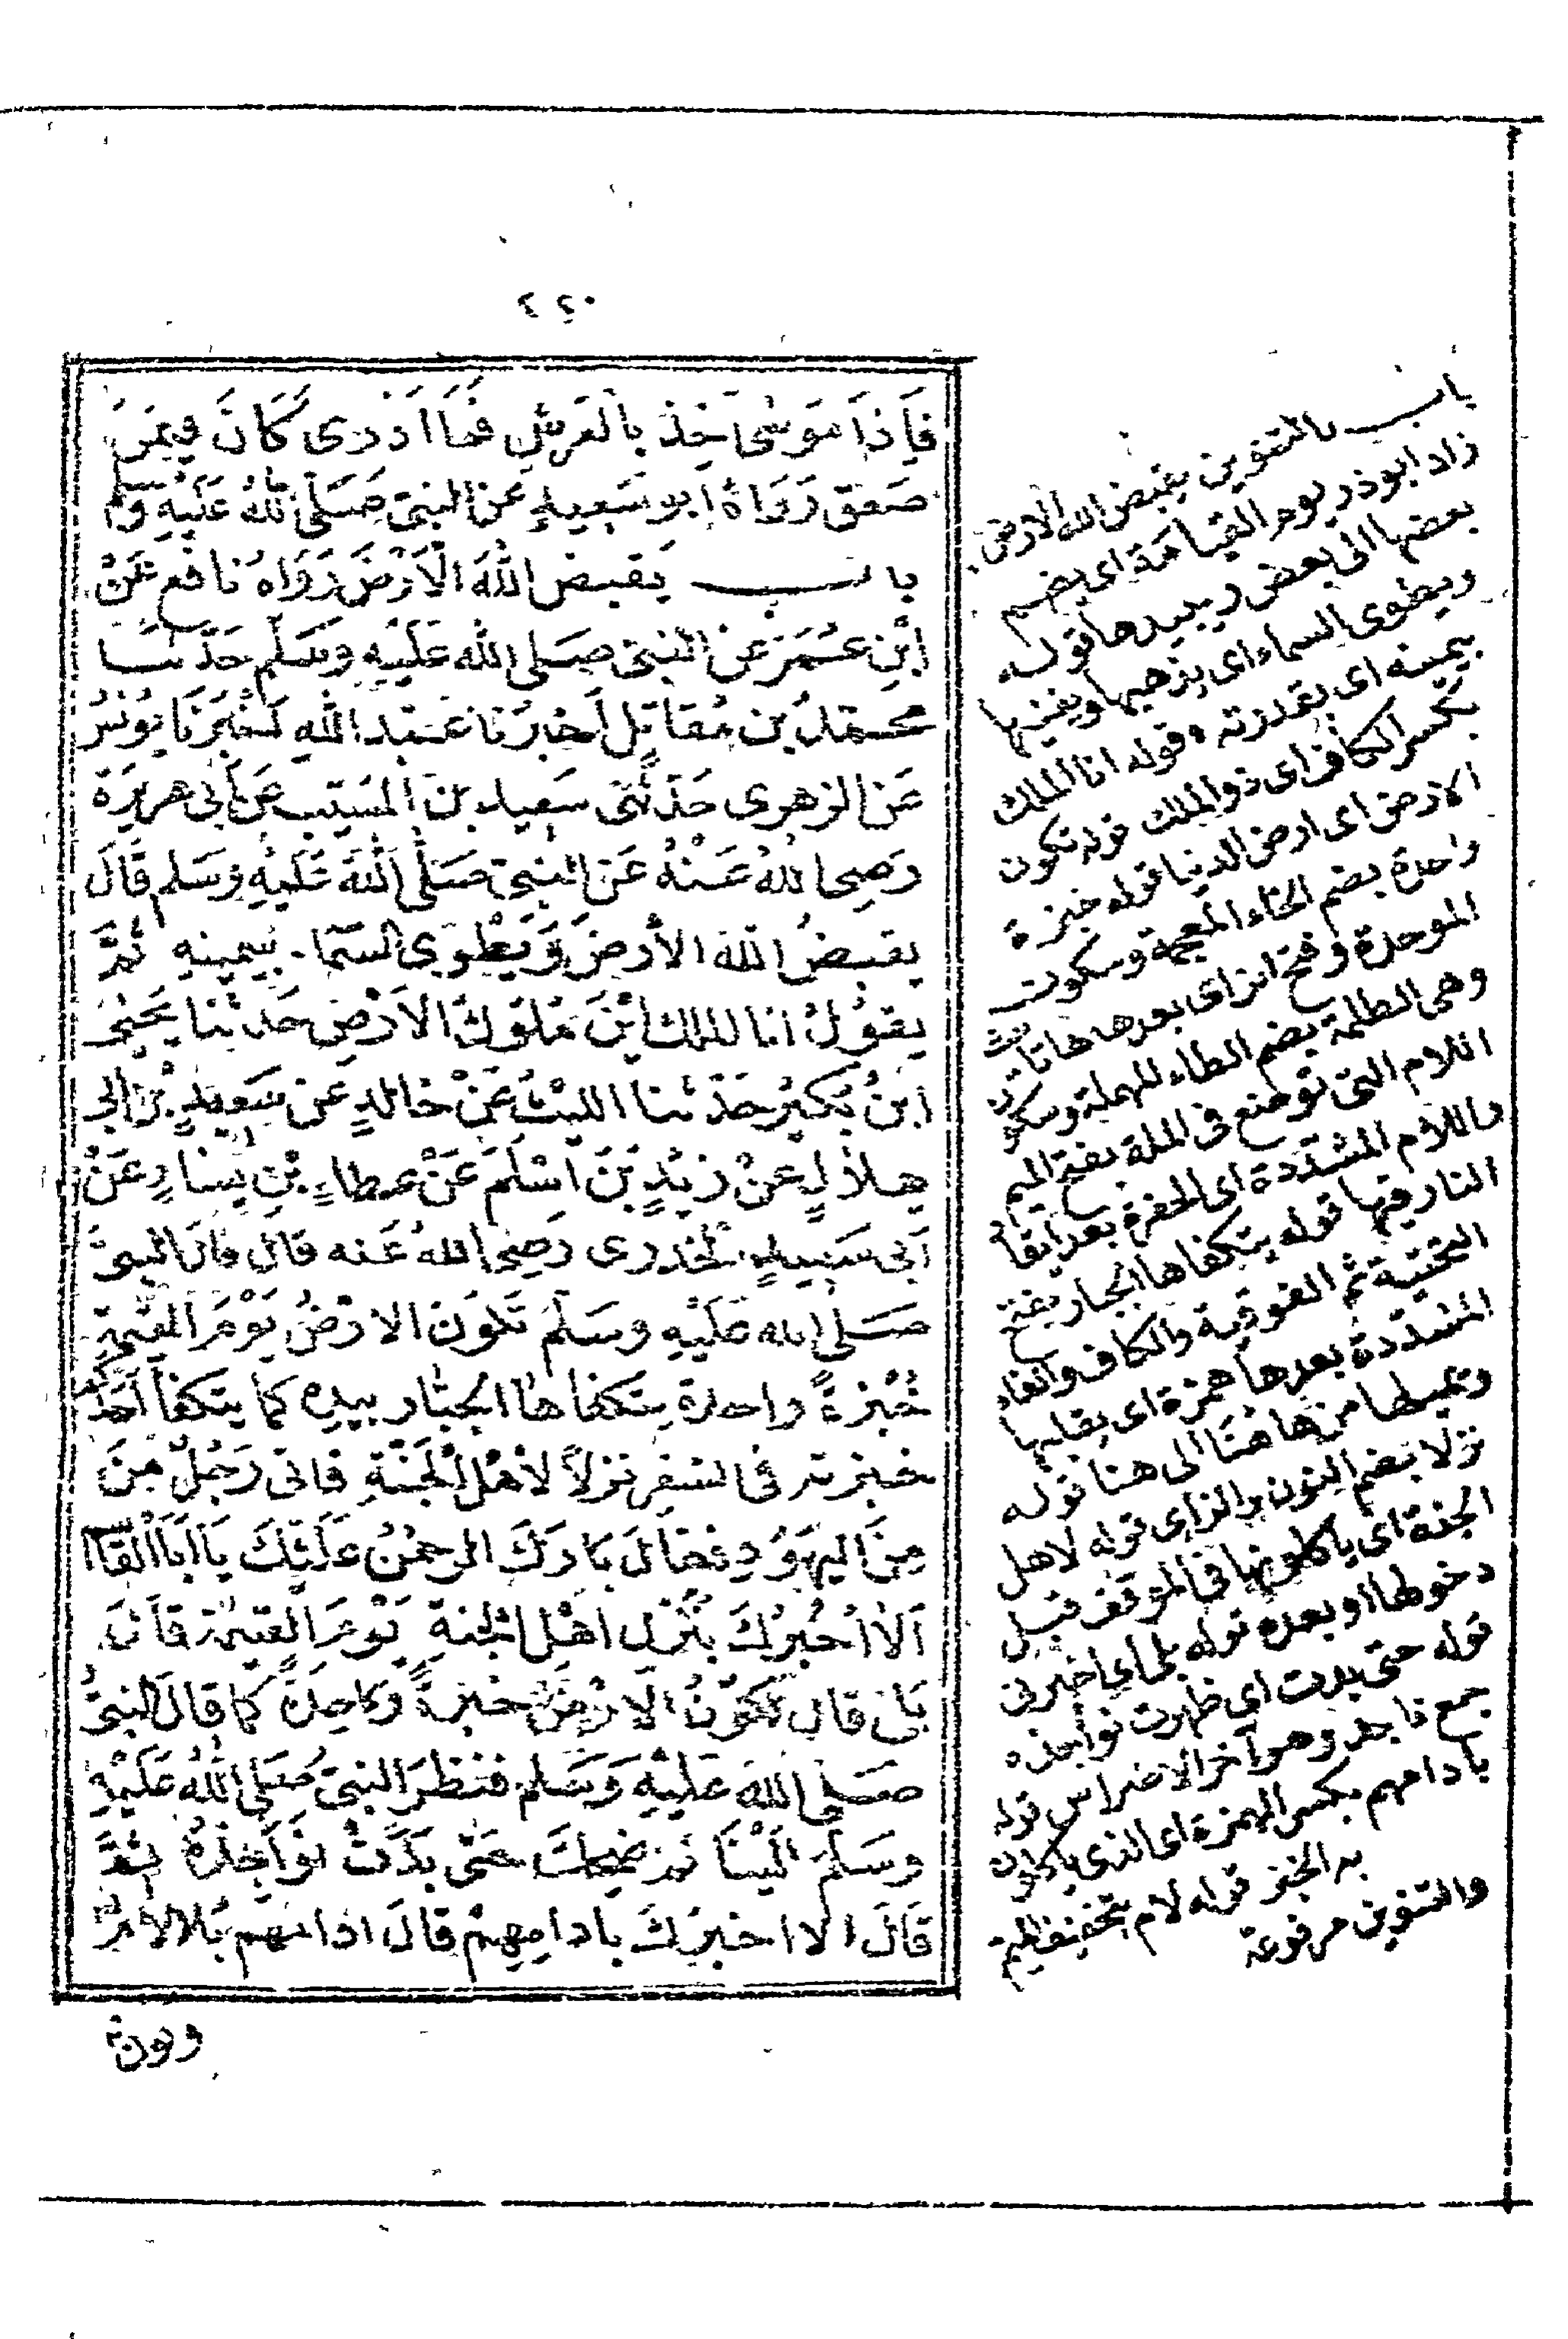 ٤٢٠
فَإِذَا مُوسَى آخِذٌ بِالْعَرْشِ فَمَا أَدْرِى كَانَ فِيمَنْ
صَعِقَ رَوَاهُ أَبُو سَعِيدٍ عَنِ النَّبِىِّ صَلَّى اللهُ عَلَيْهِ وَسَلَّمَ
باب يَقْبِضُ اللهُ الْأَرْضَ رَوَاهُ نَافِعٌ عَنِ
ابْنِ عُمَرَ عَنِ النَّبِىِّ صَلَّى اللهُ عَلَيْهِ وَسَلَّمَ حَدَّثَنَا
مُحَمَّدُ بْنُ مُقَاتِلٍ أَخْبَرَنَا عَبْدُ اللهِ أَخْبَرَنَا يُونُسُ
عَنِ الزُّهْرِى حَدَّثَنِى سَعِيدُ بْنُ الْمُسَيَّبِ عَنْ أَبِى هُرَيْرَةَ
رَضِىَ اللهُ عَنْهُ عَنِ النَّبِىِّ صَلَّى اللهُ عَلَيْهِ وَسَلَّمَ قَالَ
يَقْبِضُ اللهُ الْأَرْضَ وَيَطْوِى السَّمَا بِيَمِينِهِ ثُمَّ
يَقُولُ أَنَا الْمَلِكُ أَيْنَ مُلُوكُ الْأَرْضِ حَدَّثَنَا يَحْيَى
ابْنُ بُكَيْرٍ حَدَّثَنَا اللَّيْثُ عَنْ خَالِدٍ عَنْ سَعِيدِ بْنِ أَبِى
هِلَالٍ عَنْ زَيْدِ بْنِ أَسْلَمَ عَنْ عَطَاءِ بْنِ يَسَارٍ عَنْ
أَبِى سَعِيدٍ الْخُدْرِى رَضِىَ اللهُ عَنْهُ قَالَ قَالَ النَّبِىُّ
صَلَّى اللهُ عَلَيْهِ وَسَلَّمَ تَكُونُ الْأَرْضُ يَوْمَ الْقِيٰمَةِ
خُبْزَةً وَاحِدَةً يَتَكَفَّاهَا الْجَبَّارُ بِيَدِهِ كَمَا يَتَكَفَّأُ أَحَدُكُمْ
خُبْزَتَهُ فِى السَّفَرِ نُزُلًا لِأَهْلِ الْجَنَّةِ فَأَتَى رَجُلٌ مِنَ
مِنَ الْيَهُودِ فَقَالَ بَارَكَ الرَّحْمٰنُ عَلَيْكَ يَا أَبَا الْقَاسِمِ
أَلَا أُخْبِرُكَ بِنُزُلِ أَهْلِ الْجَنَّةِ يَوْمَ الْقِيٰمَةِ قَالَ
بَلَى قَالَ تَكُونُ الْأَرْضُ خُبْزَةً وَاحِدَةً كَمَا قَالَ النَّبِىُّ
صَلَّى اللهُ عَلَيْهِ وَسَلَّمَ فَنَظَرَ النَّبِىُّ صَلَّى اللهُ عَلَيْهِ
وَسَلَّمَ إِلَيْنَا ثُمَّ ضَحِكَ حَتَّى بَدَتْ نَوَاجِذُهُ ثُمَّ
قَالَ أَلَا أُخْبِرُكَ بِإِدَامِهِمْ قَالَ إِدَامُهُمْ بَالَامٌ
ونون
باب بالتنوين يقبض الله الارض
زاد ابوذر يوم القيامة اى يضم
بعضها الى بعض ويبيدها قوله
ويطوى السماء اى يذهبها ويفنيها
بيمينه اى بقدرته قوله انا الملك
بكسر الكاف اى ذو الملك قوله تكون
الارض اى ارض الدنيا قوله خبزة
واحدة بضم الخاء المعجمة وسكون
الموحدة وفتح الزاى بعدها هاتانيث
وهى الطلمة بضم الطاء المهملة وسكون
اللام التى توضع فى الملة بفتح الميم
واللام المشددة اى الحفرة بعد ايقاد
النار فيها قوله يتكفاها الجبار بفتح
التحتية ثم الفوقية والكاف والفاء
المشددة بعدها همزة اى يقلبها
ويميلها من هاهنا الى هنا قوله
نزلا بضم النون والزاى قوله لاهل
الجنة اى ياكلونها فى الموقف قبيل
دخولها او بعده قوله بلى اى اخبرنى
قوله حتى بدت اى ظهرت نواجذه
جمع ناجذ وهو آخر الاضراس قوله
بادامهم بكسر الهمزة اى الذى ياكلون
به الخبز قوله لام بتخفيف الميم
والتنوين مرفوعة